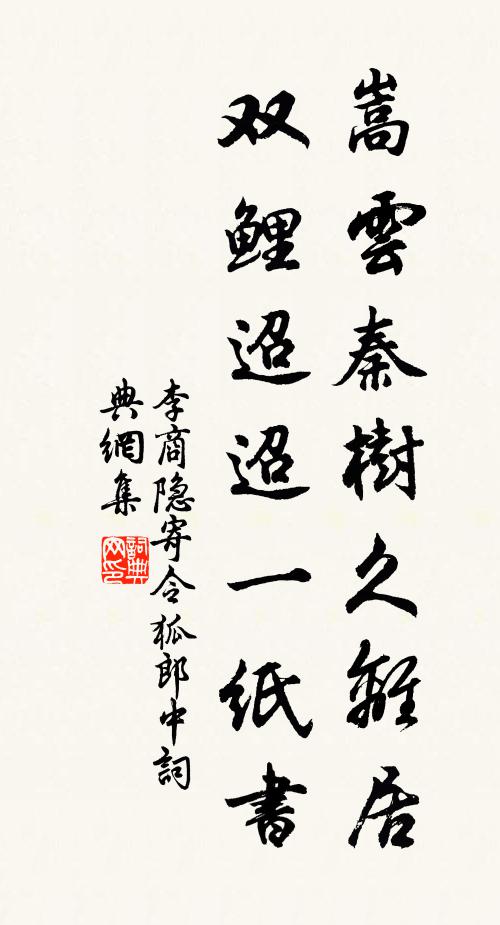 嵩雲秦樹久離居
双鯉迢迢一紙書
李商隐寄令狐郎中詞
典網集
詞典网印